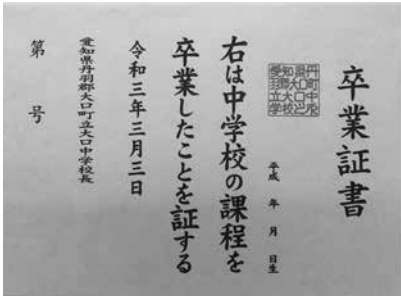 卒業証書
愛知県丹
羽郡大口町
立大口中
学校之印
平成 年 月 日生
右は中学校の課程を
卒業したことを証する
令和三年三月三日
愛知県丹羽郡大口町立大口中学校長
第 号